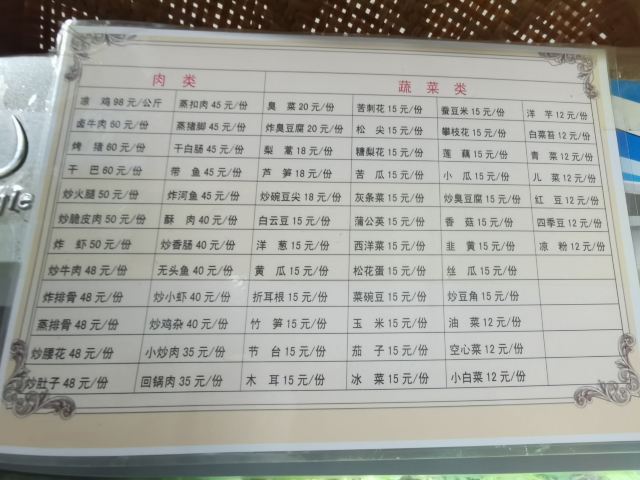 肉类 蔬菜类
凉鸡98元/公斤 蒸扣肉45元/份 臭菜20元/份 苦刺花15元/份 蚕豆米15元/份 洋芋12元/份
卤牛肉60元/份 蒸猪脚45元/份 炸臭豆腐20元/份 松尖15元/份 攀枝花15元/份 白菜苔12元/份
烤猪60元/份 干白肠45元/份 梨蒿18元/份 糖梨花15元/份 莲藕15元/份 青菜12元/份
干巴60元/份 带鱼45元/份 芦笋18元/份 苦瓜15元/份 小瓜15元/份 儿菜12元/份
炒火腿50元/份 炸河鱼45元/份 炒碗豆尖18元/份 灰条菜15元/份 炒臭豆腐15元/份 红豆12元/份
炒脆皮肉50元/份 酥肉40元/份 白云豆15元/份 蒲公英15元/份 香菇15元/份 四季豆12元/份
炸虾50元/份 炒香肠40元/份 洋葱15元/份 西洋菜15元/份 韭黄15元/份 凉粉12元/份
炒牛肉48元/份 无头鱼40元/份 黄瓜15元/份 松花蛋15元/份 丝瓜15元/份
炸排骨48元/份 炒小虾40元/份 折耳根15元/份 菜碗豆15元/份 炒豆角15元/份
蒸排骨48元/份 炒鸡杂40元/份 竹笋15元/份 玉米15元/份 油菜12元/份
炒腰花48元/份 小炒肉35元/份 节台15元/份 茄子15元/份 空心菜12元/份
炒肚子48元/份 回锅肉35元/份 木耳15元/份 冰菜15元/份 小白菜12元/份